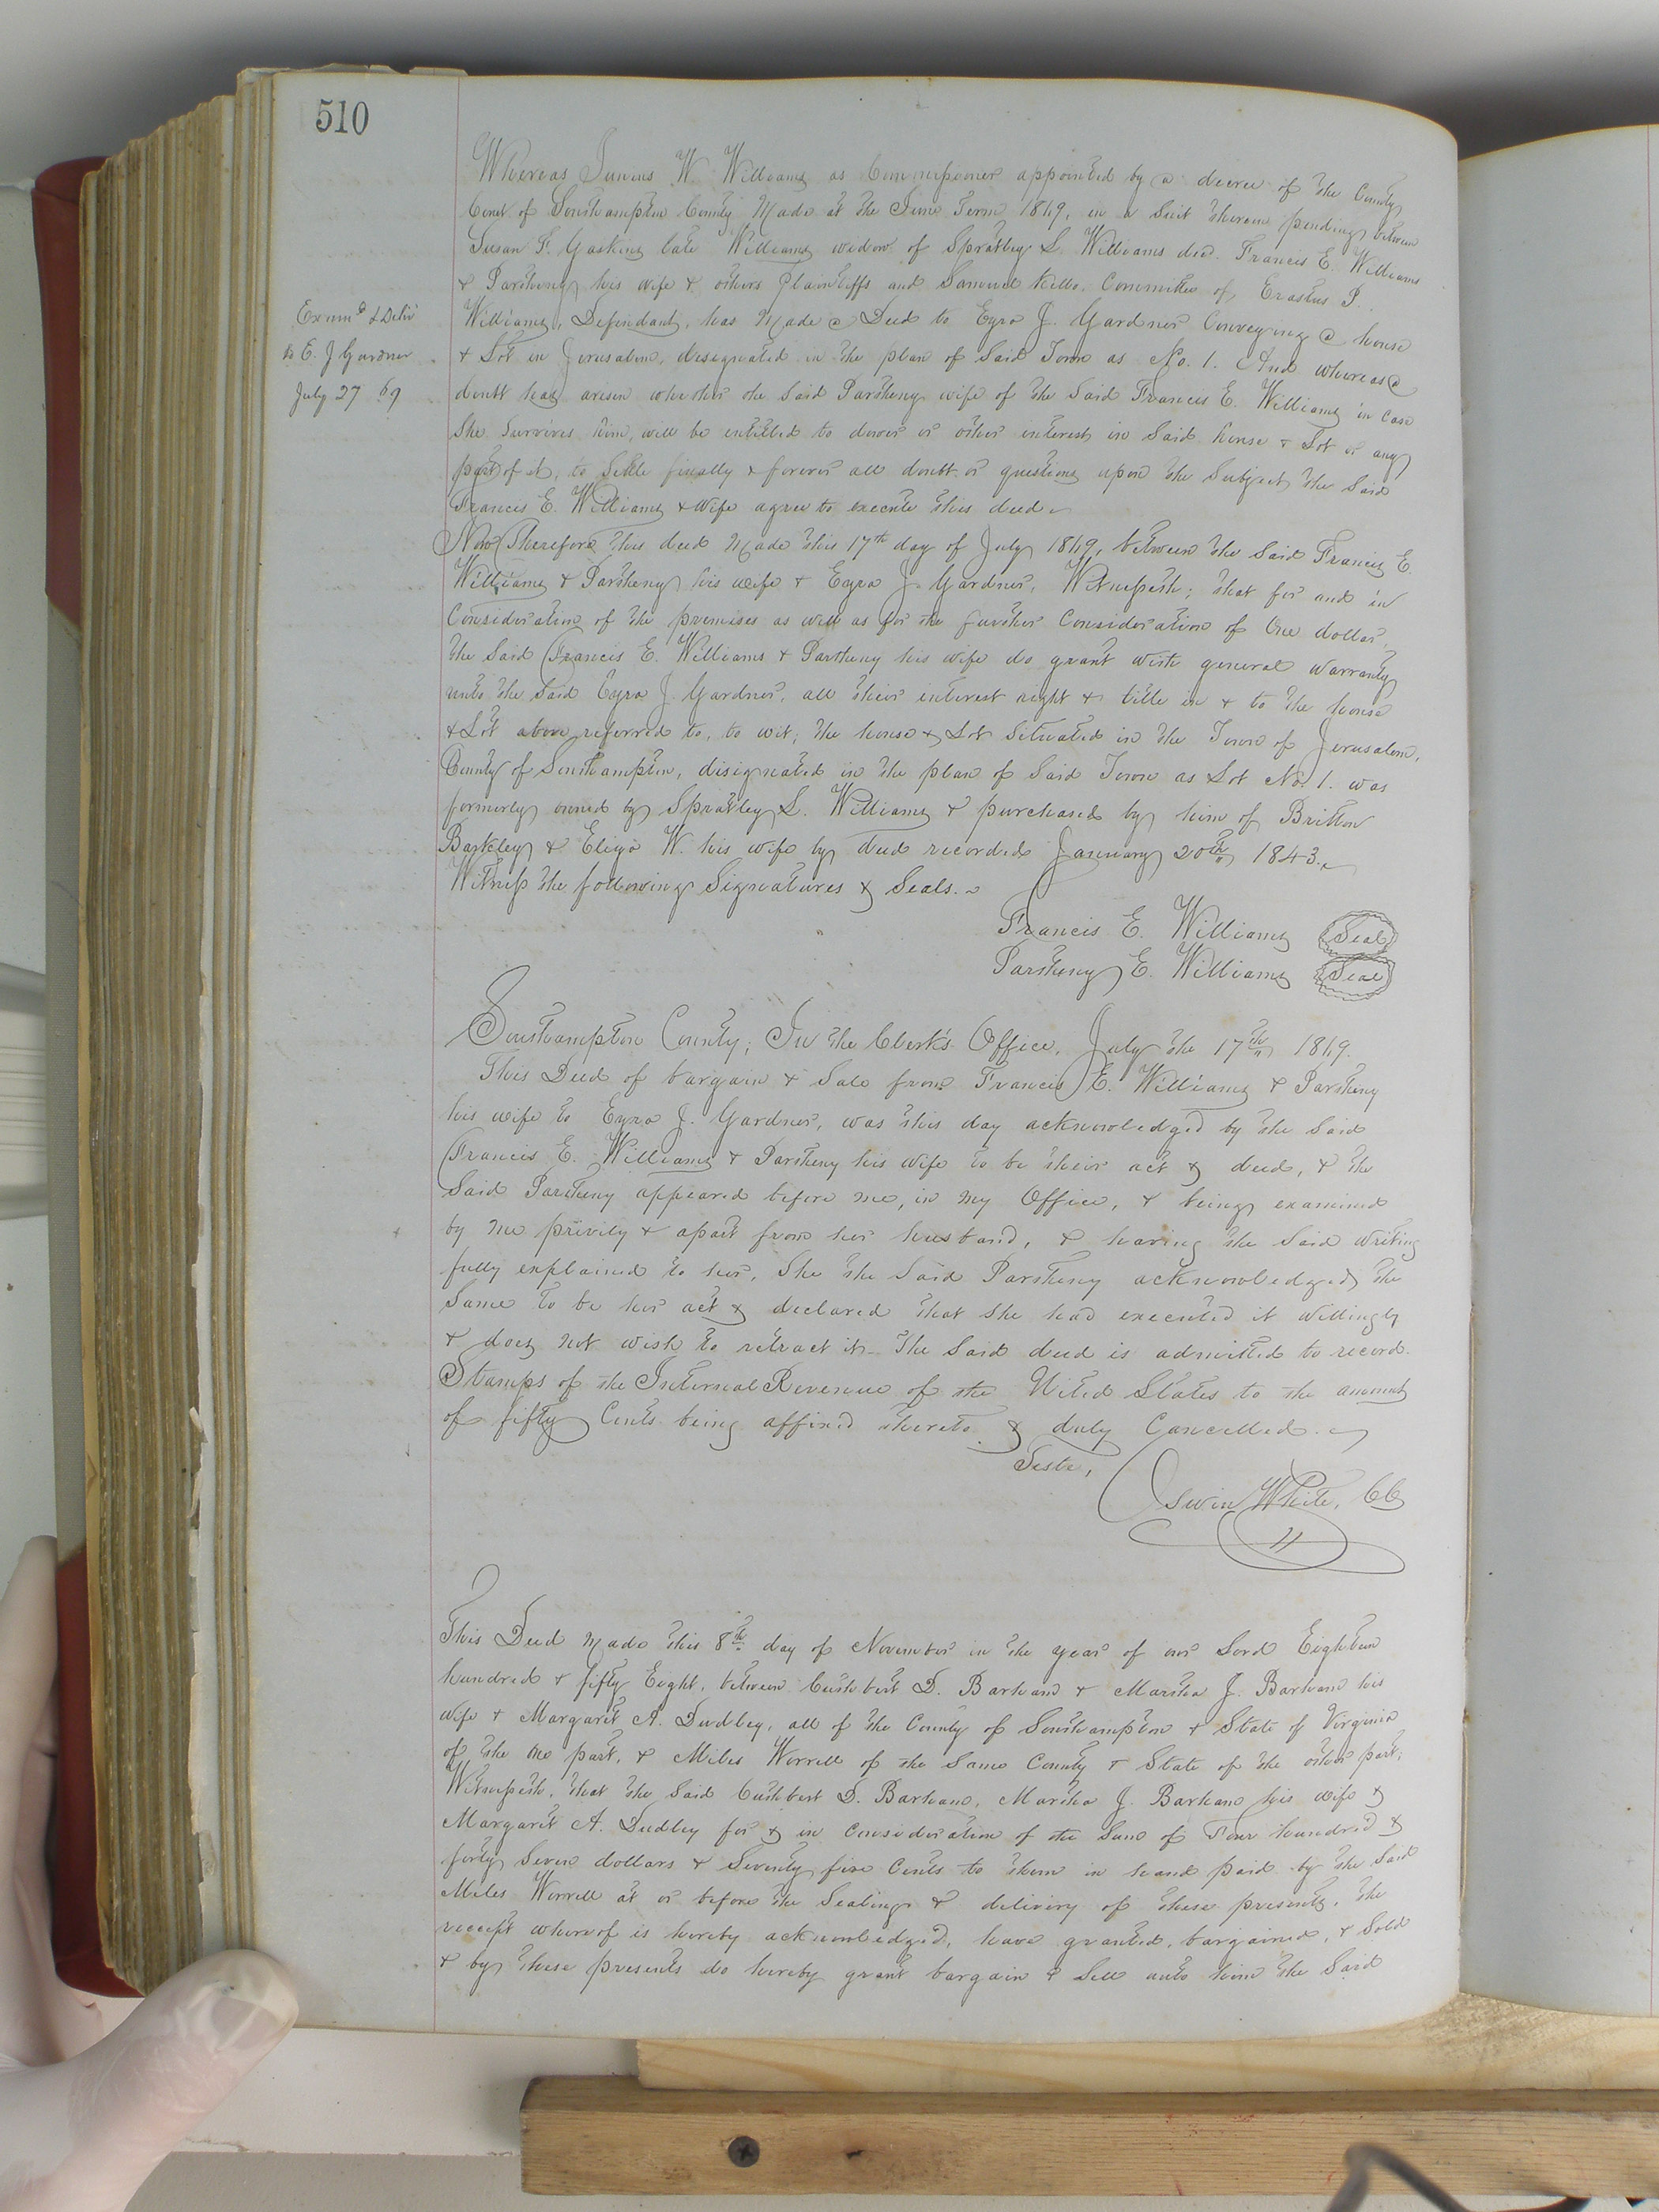 510
Whereas Junius W. Williams as Commissioner appointed by a decree of the County
Court of Southampton County Made at the June Term 1869, in a Suit therein pending between
Susan F. Gaskins late Williams widow of Spratley S. Williams decd. Francis E. Williams
& Partheny his wife & others Plaintiffs and Samuel Kello, Committee of Erastus P.
Williams, Defendant, has Made a Deed to Ezra J. Gardner Conveying a house
& Lot in Jerusalem, designated in the plan of Said Town as No. 1. And whereas a
doubt has arisen whether the Said Partheny wife of the Said Francis E. Williams in case
She Survives him, will be entitled to dower or other interest in Said house & Lot or any
part of it, to Settle finally & forever all doubt or questions upon the Subject the Said
Francis E. Williams & Wife agree to execute this deed
Examd & Deliv
to E. J Gardner
July 27 69
Now Therefore This deed Made this 17th day of July 1869, between the Said Francis E.
Williams & Partheny his wife & Ezra J. Gardner, Witnesseth; that for and in
Consideration of the premises as well as for the further Consideration of One dollar,
the Said Francis E. Williams & Partheny his wife do grant with general warranty
unto the Said Ezra J. Gardner, all their interest right & title in & to the house
& Lot above referred to, to wit; the house & Lot Situated in the Town of Jerusalem,
County of Southampton, disignated in the plan of Said Town as Lot No. 1. was
formerly owned by Spratley S. Williams & purchased by him of Britton
Barkley & Eliza W. his wife by deed recorded January 20th 1843.
Witness the following Signatures & Seals.
Francis E. Williams Seal
Partheny E. Williams Seal
Southampton County; In the Clerk's Office, July the 17th 1869.
This Deed of bargain & Sale from Francis E. Williams & Partheny
his wife to Ezra J. Gardner, was this day acknowledged by the Said
Francis E. Williams & Partheny his wife to be their act & deed, & the
Said Partheny appeared before me, in my Office, & being examined
by me privily & apart from her husband, & having the Said writing
fully explained to her, She the Said Partheny acknowledged the
Same to be her act & declared that She had executed it willingly
& does not wish to retract it. The Said deed is admitted to record.
Stamps of the Internal Revenue of the Uited States to the amount
of fifty Cents being affixed thereto & duly Cancelled.
Teste,
Edwin White, CC
This Deed Made this 8th day of November in the year of our Lord Eighteen
hundred & fifty Eight, between Cuthbert D. Barham & Martha J. Barham his
wife & Margaret A. Dudley, all of the County of Southampton & State of Virginia
of the one part, & Miles Worrell of the Same County & State of the other part;
Witnesseth, that the Said Cuthbert D. Barham, Martha J. Barham his wife &
Margaret A. Dudley for & in Consideration of the Sum of Four hundred &
forty Seven dollars & Seventy five Cents to them in hand paid by the Said
Miles Worrell at or before the Sealing & delivery of these presents, the
receipt whereof is hereby acknowledged, have granted, bargained, & Sold
& by these presents do hereby grant bargain & Sell unto him the Said